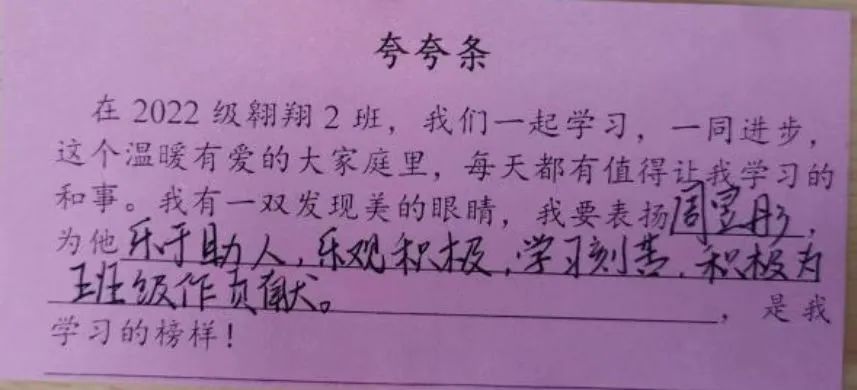 夸夸条
在 2022 级翱翔 2 班，我们一起学习，一同进步，
这个温暖有爱的大家庭里，每天都有值得让我学习的
和事。我有一双发现美的眼睛，我要表扬周昱彤，
为他乐于助人，乐观积极，学习刻苦，积极为
班级作贡献。，是我
学习的榜样！